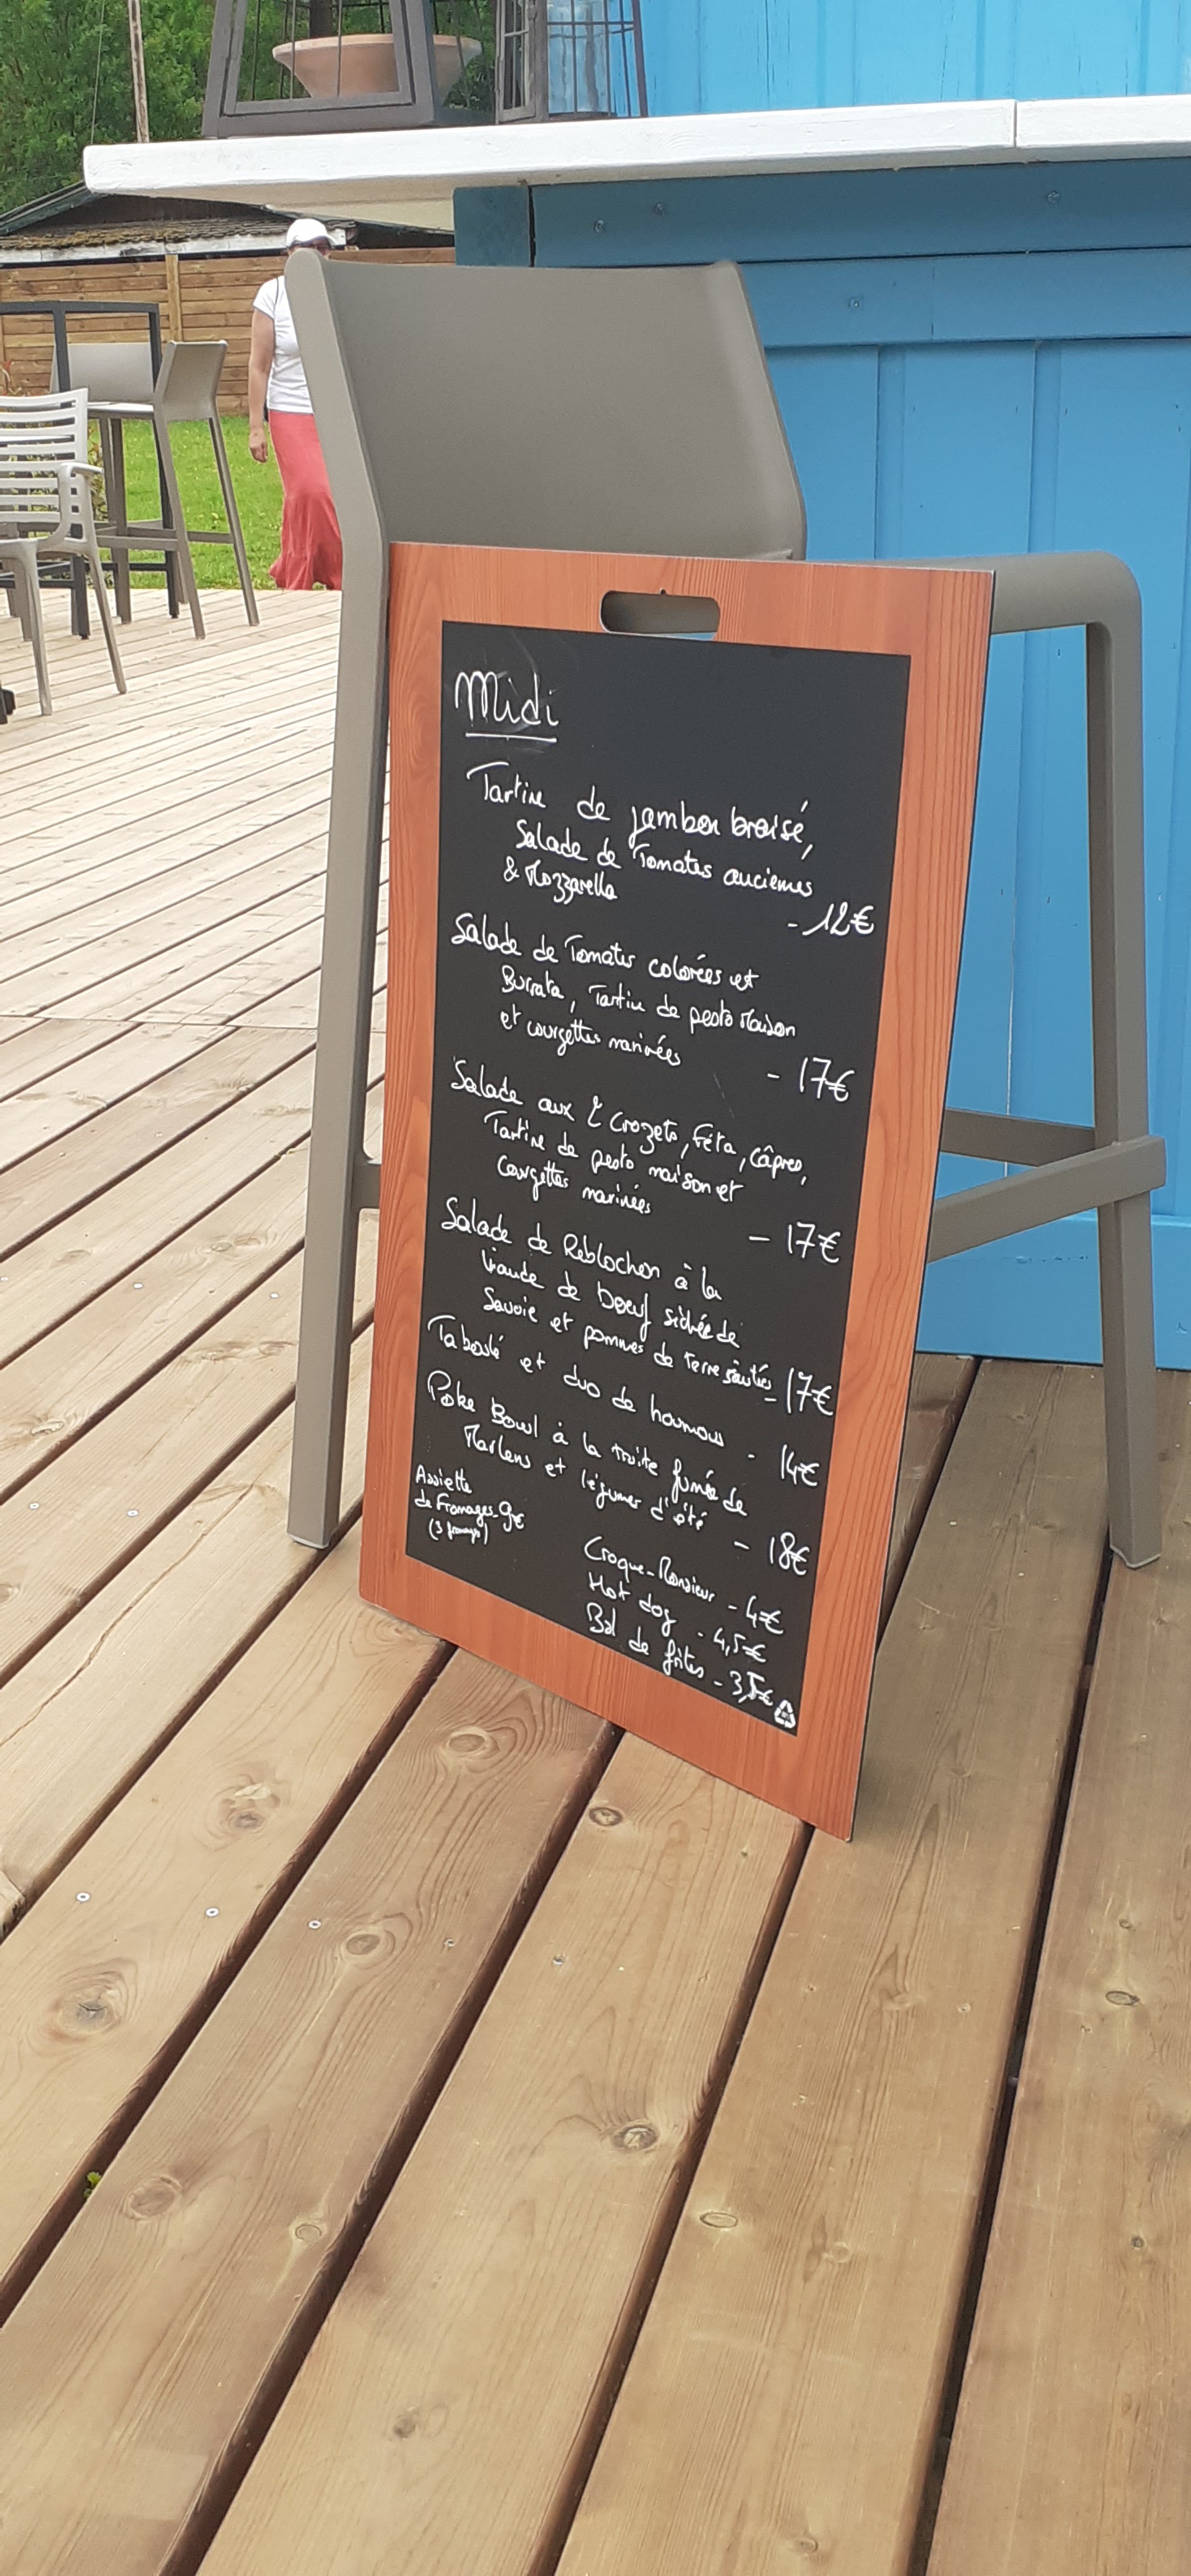 Midi
Tartine de jambon braisé,
Salade de Tomates anciennes
& Mozzarella
- 12€
Salade de Tomates colorées et
Burrata, Tartine de pesto Maison
et courgettes marinées
- 17€
Salade aux 2 Crozets, Féta, Câpres,
Tartine de pesto maison et
Courgettes marinées
- 17€
Salade de Reblochon à la
Viande de boeuf séchée de
Savoie et pommes de terre sautées - 17€
Taboulé et duo de houmous - 14€
Poke Bowl à la truite fumée de
Marlens et légumes d'été - 18€
Assiette
de Fromages - 9€
(3 fromages)
Croque-Monsieur - 4€
Hot dog - 4,5€
Bol de frites - 3,5€